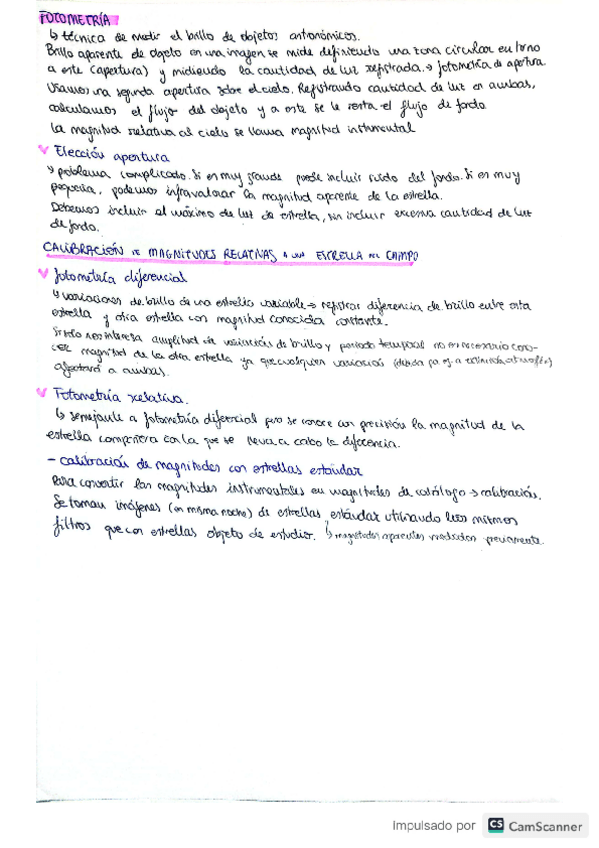 FOTOMETRÍA
↳ técnica de medir el brillo de objetos astronómicos.
Brillo aparente de objeto en una imagen se mide definiendo una zona circular en torno
a este (apertura) y midiendo la cantidad de luz registrada. → fotometría de apertura.
Usamos una segunda apertura sobre el cielo. Registrando cantidad de luz en ambas,
calculamos el flujo del objeto y a este se le resta el flujo de fondo
La magnitud relativa al cielo se llama magnitud instrumental
Elección apertura
↳ problema complicado. Si es muy grande puede incluir ruido del fondo. Si es muy
pequeña, podemos infravalorar la magnitud aparente de la estrella.
Debemos incluir al máximo de luz de estrella, sin incluir excesiva cantidad de luz
de fondo.
CALIBRACIÓN DE MAGNITUDES RELATIVAS A UNA ESTRELLA DEL CAMPO
fotometría diferencial
↳ variaciones de brillo de una estrella variable → registrar diferencia de brillo entre esta
estrella y otra estrella con magnitud conocida constante.
Si solo nos interesa amplitud de variación de brillo y periodo temporal no es necesario cono-
cer magnitud de la otra estrella ya que cualquier variación (debida p.ej. a extinción atmosf.)
afectará a ambas.
Fotometría relativa.
↳ semejante a fotometría diferencial pero se conoce con precisión la magnitud de la
estrella compañera con la que se lleva a cabo la diferencia.
- calibración de magnitudes con estrellas estándar
Para convertir las magnitudes instrumentales en magnitudes de catálogo → calibración.
Se toman imágenes (en misma noche) de estrellas estándar utilizando los mismos
filtros que con estrellas objeto de estudio. ↳ magnitudes aparentes medidas previamente.
Impulsado por CS CamScanner